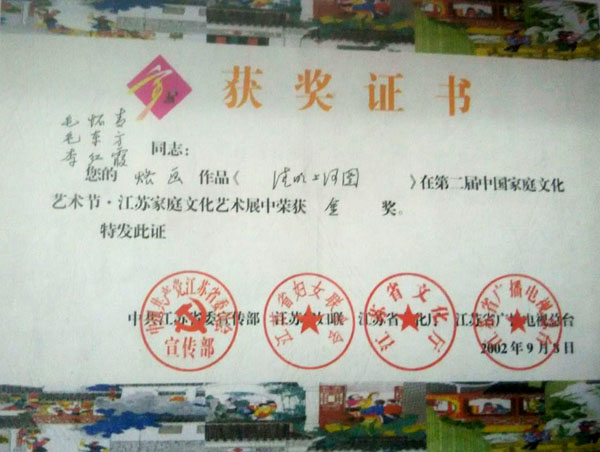 获奖证书
毛怀青
毛东方
李红霞 同志:
您的 烙画 作品《 清明上河图 》在第二届中国家庭文化
艺术节·江苏家庭文化艺术展中荣获 金 奖。
特发此证
中共江苏省委宣传部 江苏省妇联 江苏省文化厅 江苏省广播电视总台
2002年9月8日
中国共产党江苏省委员会
宣传部
江苏省妇女联合会
江苏省文化厅
江苏省广播电视